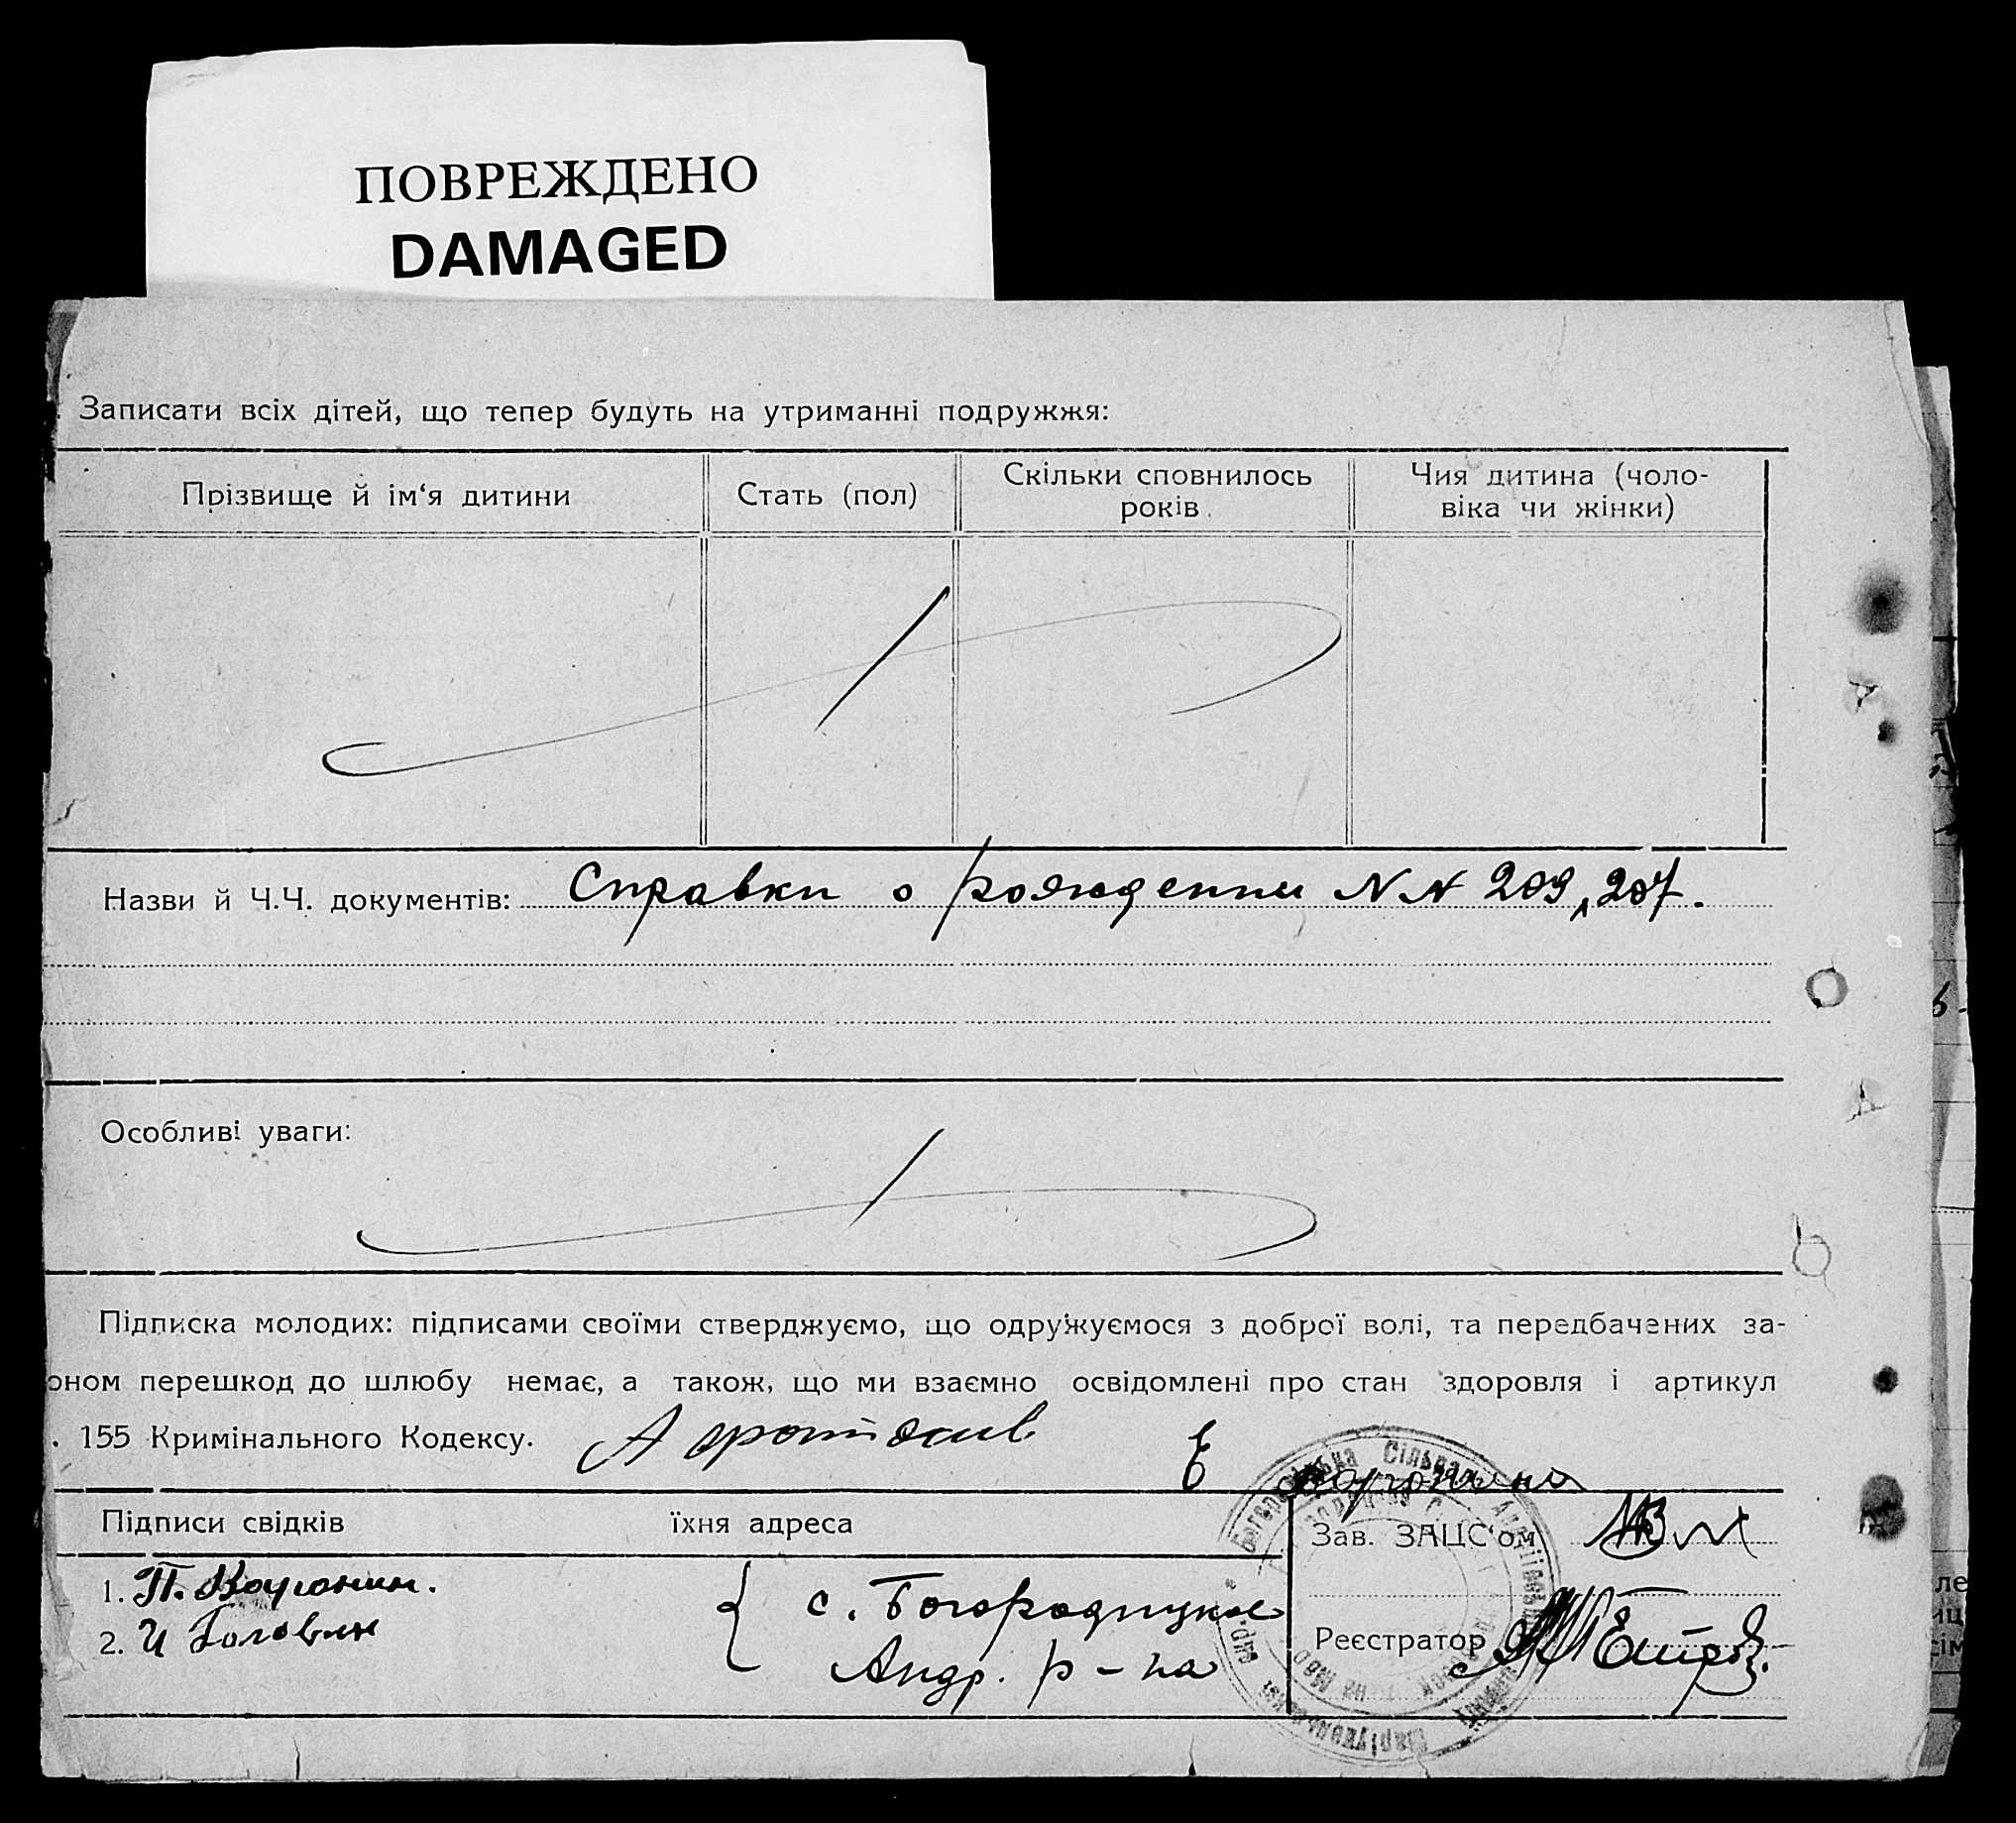 ПОВРЕЖДЕНО
DAMAGED
Записати всіх дітей, що тепер будуть на утриманні подружжя:
Прізвище й ім‘я дитини
Стать (пол)
Скільки сповнилось
років
Чия дитина (чоло-
віка чи жінки)
Назви й Ч.Ч. документів: Справки о рождении NN 209, 207.
Особливі уваги:
Підписка молодих: підписами своїми стверджуємо, що одружуємося з доброї волі, та передбачених за-
оном перешкод до шлюбу немає, а також, що ми взаємно освідомлені про стан здоровля і артикул
. 155 Кримінального Кодексу.
Підписи свідків
їхня адреса
Зав. ЗАЦС‘ом
1. П.
2. И Головин
с. Богородицкое
Андр. р-на
Реєстратор